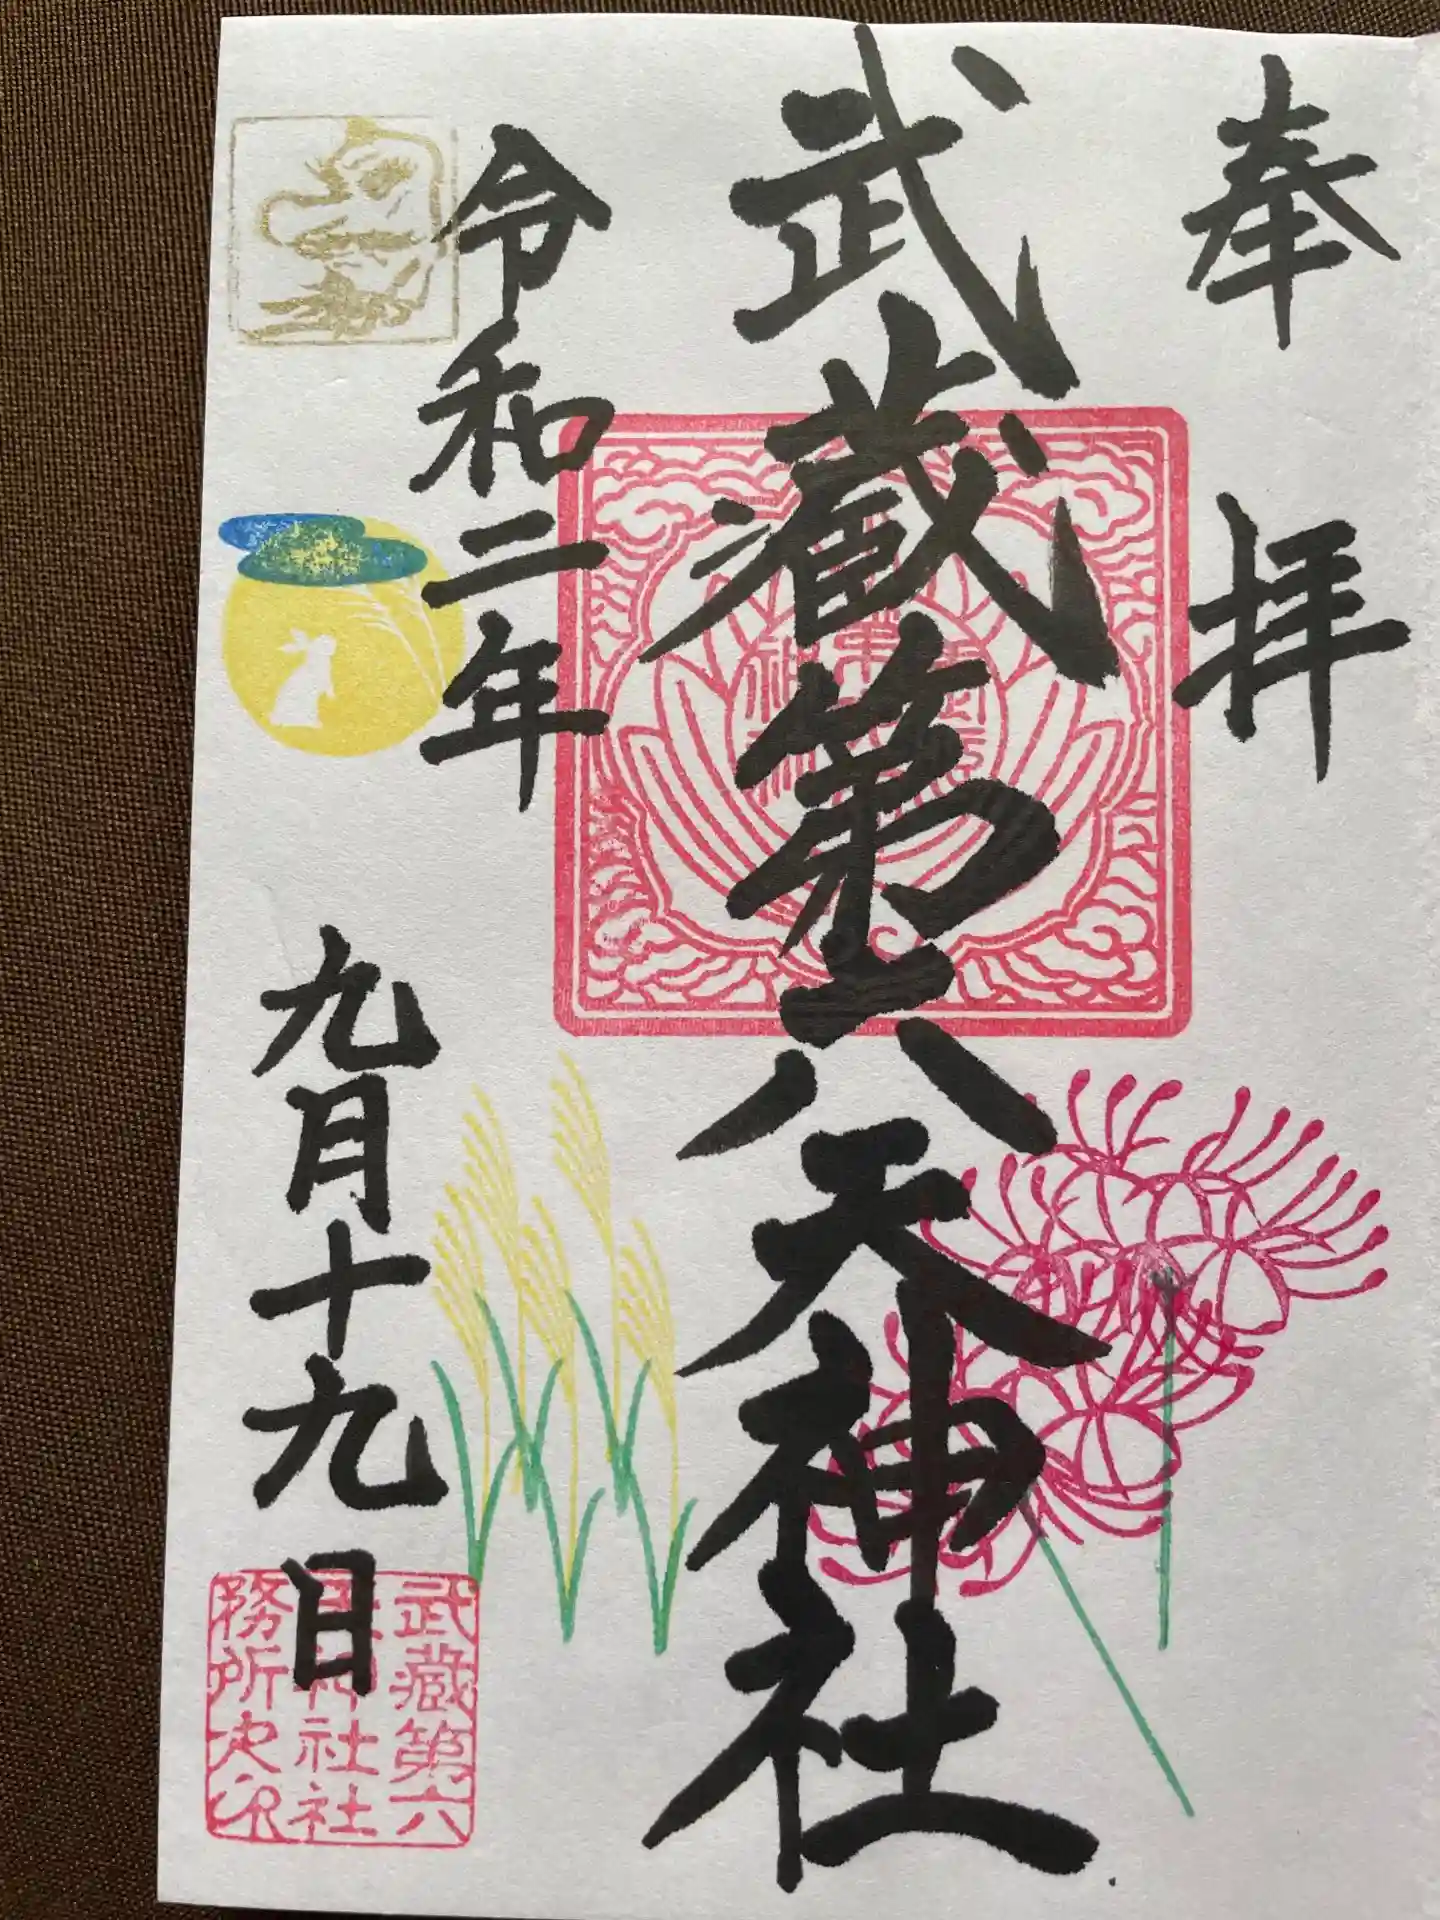 奉拝
武蔵第六天神社
令和二年
九月十九日
武蔵第六
神社社
務所之印